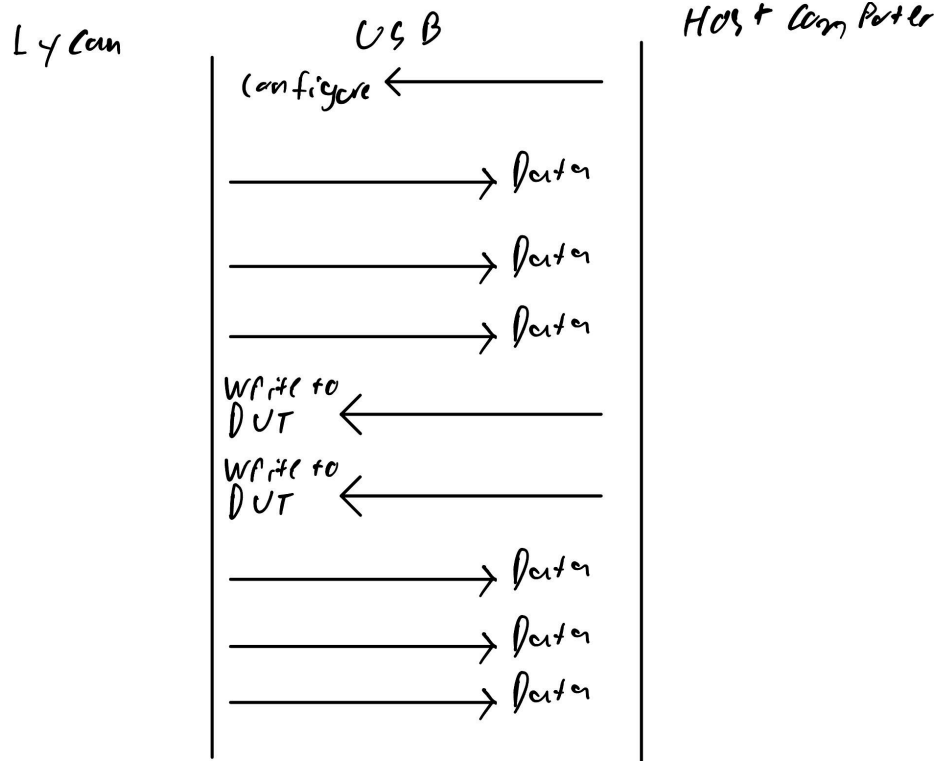 Lycan
USB
Host Computer
Configure
Data
Data
Data
Write to
DUT
Write to
DUT
Data
Data
Data